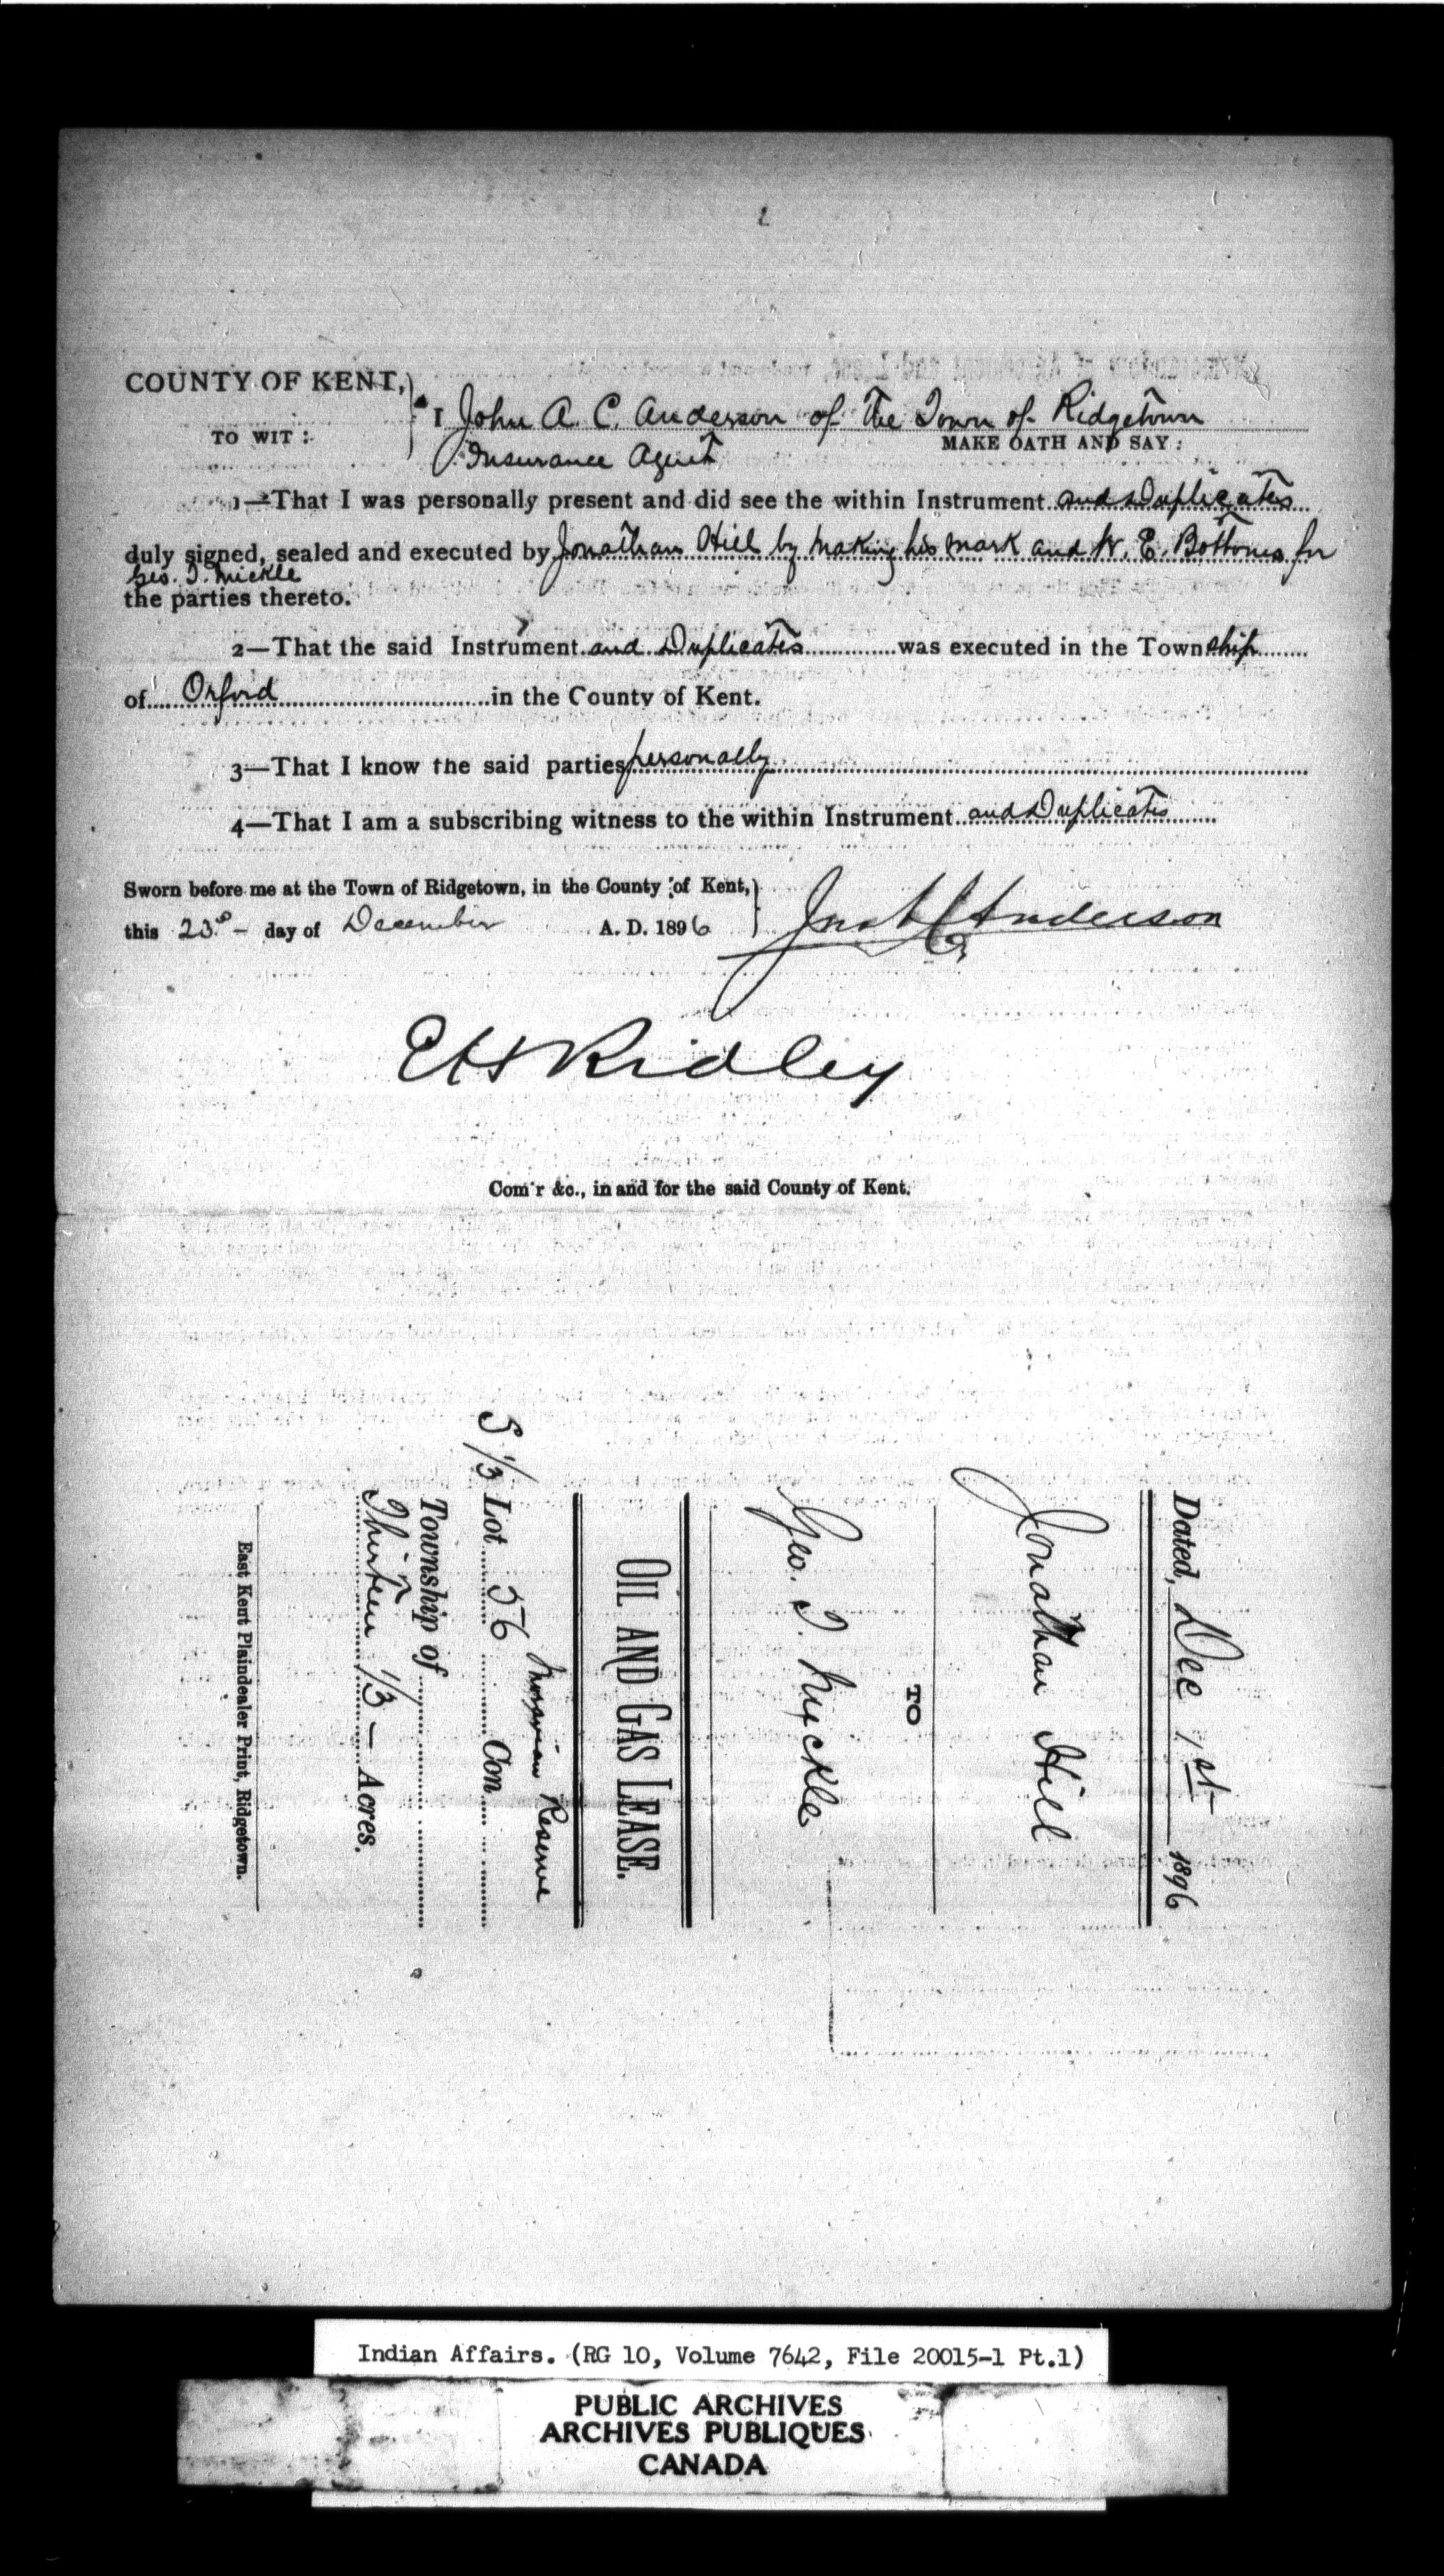 COUNTY OF KENT,
TO WIT :
I John A. C. Anderson of the Town of Ridgetown
Insurance Agent MAKE OATH AND SAY :
1—That I was personally present and did see the within Instrument and Duplicates
duly signed, sealed and executed by Jonathan Hill by making his mark and W. E. Bottoms for
Geo. T. Mickle
the parties thereto.
2—That the said Instrument and Duplicates was executed in the Township
of Orford in the County of Kent.
3—That I know the said parties personally
4—That I am a subscribing witness to the within Instrument and Duplicates
Sworn before me at the Town of Ridgetown, in the County of Kent,
this 23rd day of December A. D. 1896
Jno A C Anderson
E H Ridley
Com'r &c., in and for the said County of Kent.
Dated, Dec 1st 1896
Jonathan Hill
TO
Geo. T. Mickle
OIL AND GAS LEASE.
Moravian Reserve
S 1/3 Lot 56 Con
Township of
Thirteen 1/3 — Acres.
East Kent Plaindealer Print, Ridgetown.
Indian Affairs. (RG 10, Volume 7642, File 20015-1 Pt.1)
PUBLIC ARCHIVES
ARCHIVES PUBLIQUES
CANADA